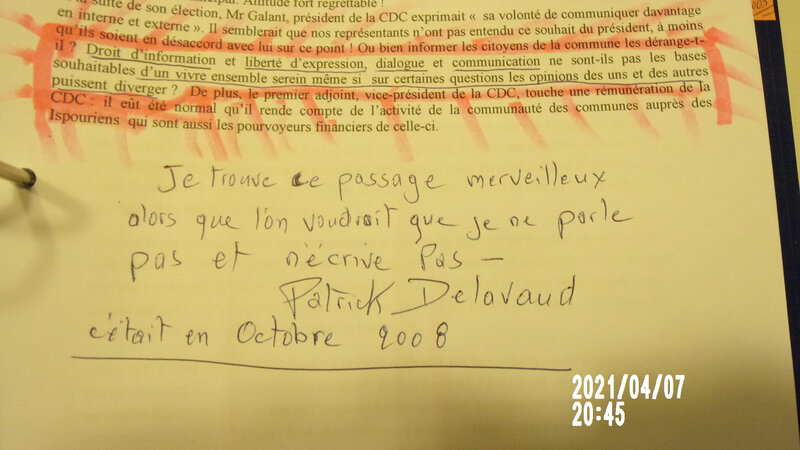 ipal. Attitude fort regrettable !
la suite de son élection, Mr Galant, président de la CDC exprimait « sa volonté de communiquer davantage
en interne et externe ». Il semblerait que nos représentants n'ont pas entendu ce souhait du président, à moins
qu'ils soient en désaccord avec lui sur ce point ! Ou bien informer les citoyens de la commune les dérange-t-
il ? Droit d'information et liberté d'expression, dialogue et communication ne sont-ils pas les bases
souhaitables d'un vivre ensemble serein même si sur certaines questions les opinions des uns et des autres
puissent diverger ? De plus, le premier adjoint, vice-président de la CDC, touche une rémunération de la
CDC : il eût été normal qu'il rende compte de l'activité de la communauté des communes auprès des
Ispouriens qui sont aussi les pourvoyeurs financiers de celle-ci.
Je trouve ce passage merveilleux
alors que l'on voudrait que je ne parle
pas et n'écrive Pas —
Patrick Delavaud
c'était en Octobre 2008
2021/04/07
20:45